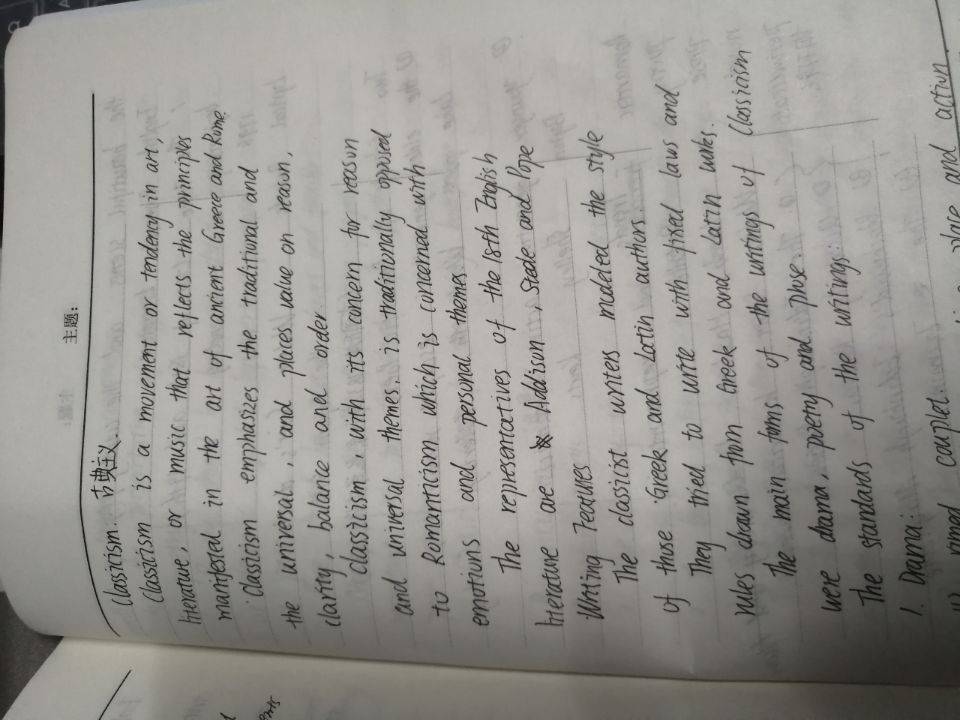 主题:
Classicism. 古典主义
Classicism is a movement or tendency in art,
literature, or music that reflects the principles
manifested in the art of ancient Greece and Rome.
Classicism emphasizes the traditional and
the universal, and places value on reason,
clarity, balance and order
classicism, with its concern for reason
and universal themes, is traditionally opposed
to Romanticism which is concerned with
emotions and personal themes
The representatives of the 18th English
literature are Addison, Steele and Pope
Writing Features
The classicist writers modeled the style
of those Greek and Latin authors
They tried to write with fixed laws and
rules drawn from Greek and Latin works.
The main forms of the writings of Classicism
were drama, poetry and prose.
The standards of the writings:
1. Drama:
couplet.
place and action.